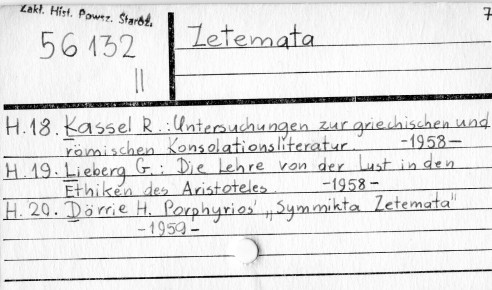 Zakł. Hist. Powsz. Staroż.
7
56132
II
Zetemata
H.18. Kassel R.: Untersuchungen zur griechischen und
römischen Konsolationsliteratur. -1958-
H.19. Lieberg G.: Die Lehre von der Lust in den
Ethiken des Aristoteles. -1958-
H.20. Dörrie H. Porphyrios' „Symmikta Zetemata"
-1959-